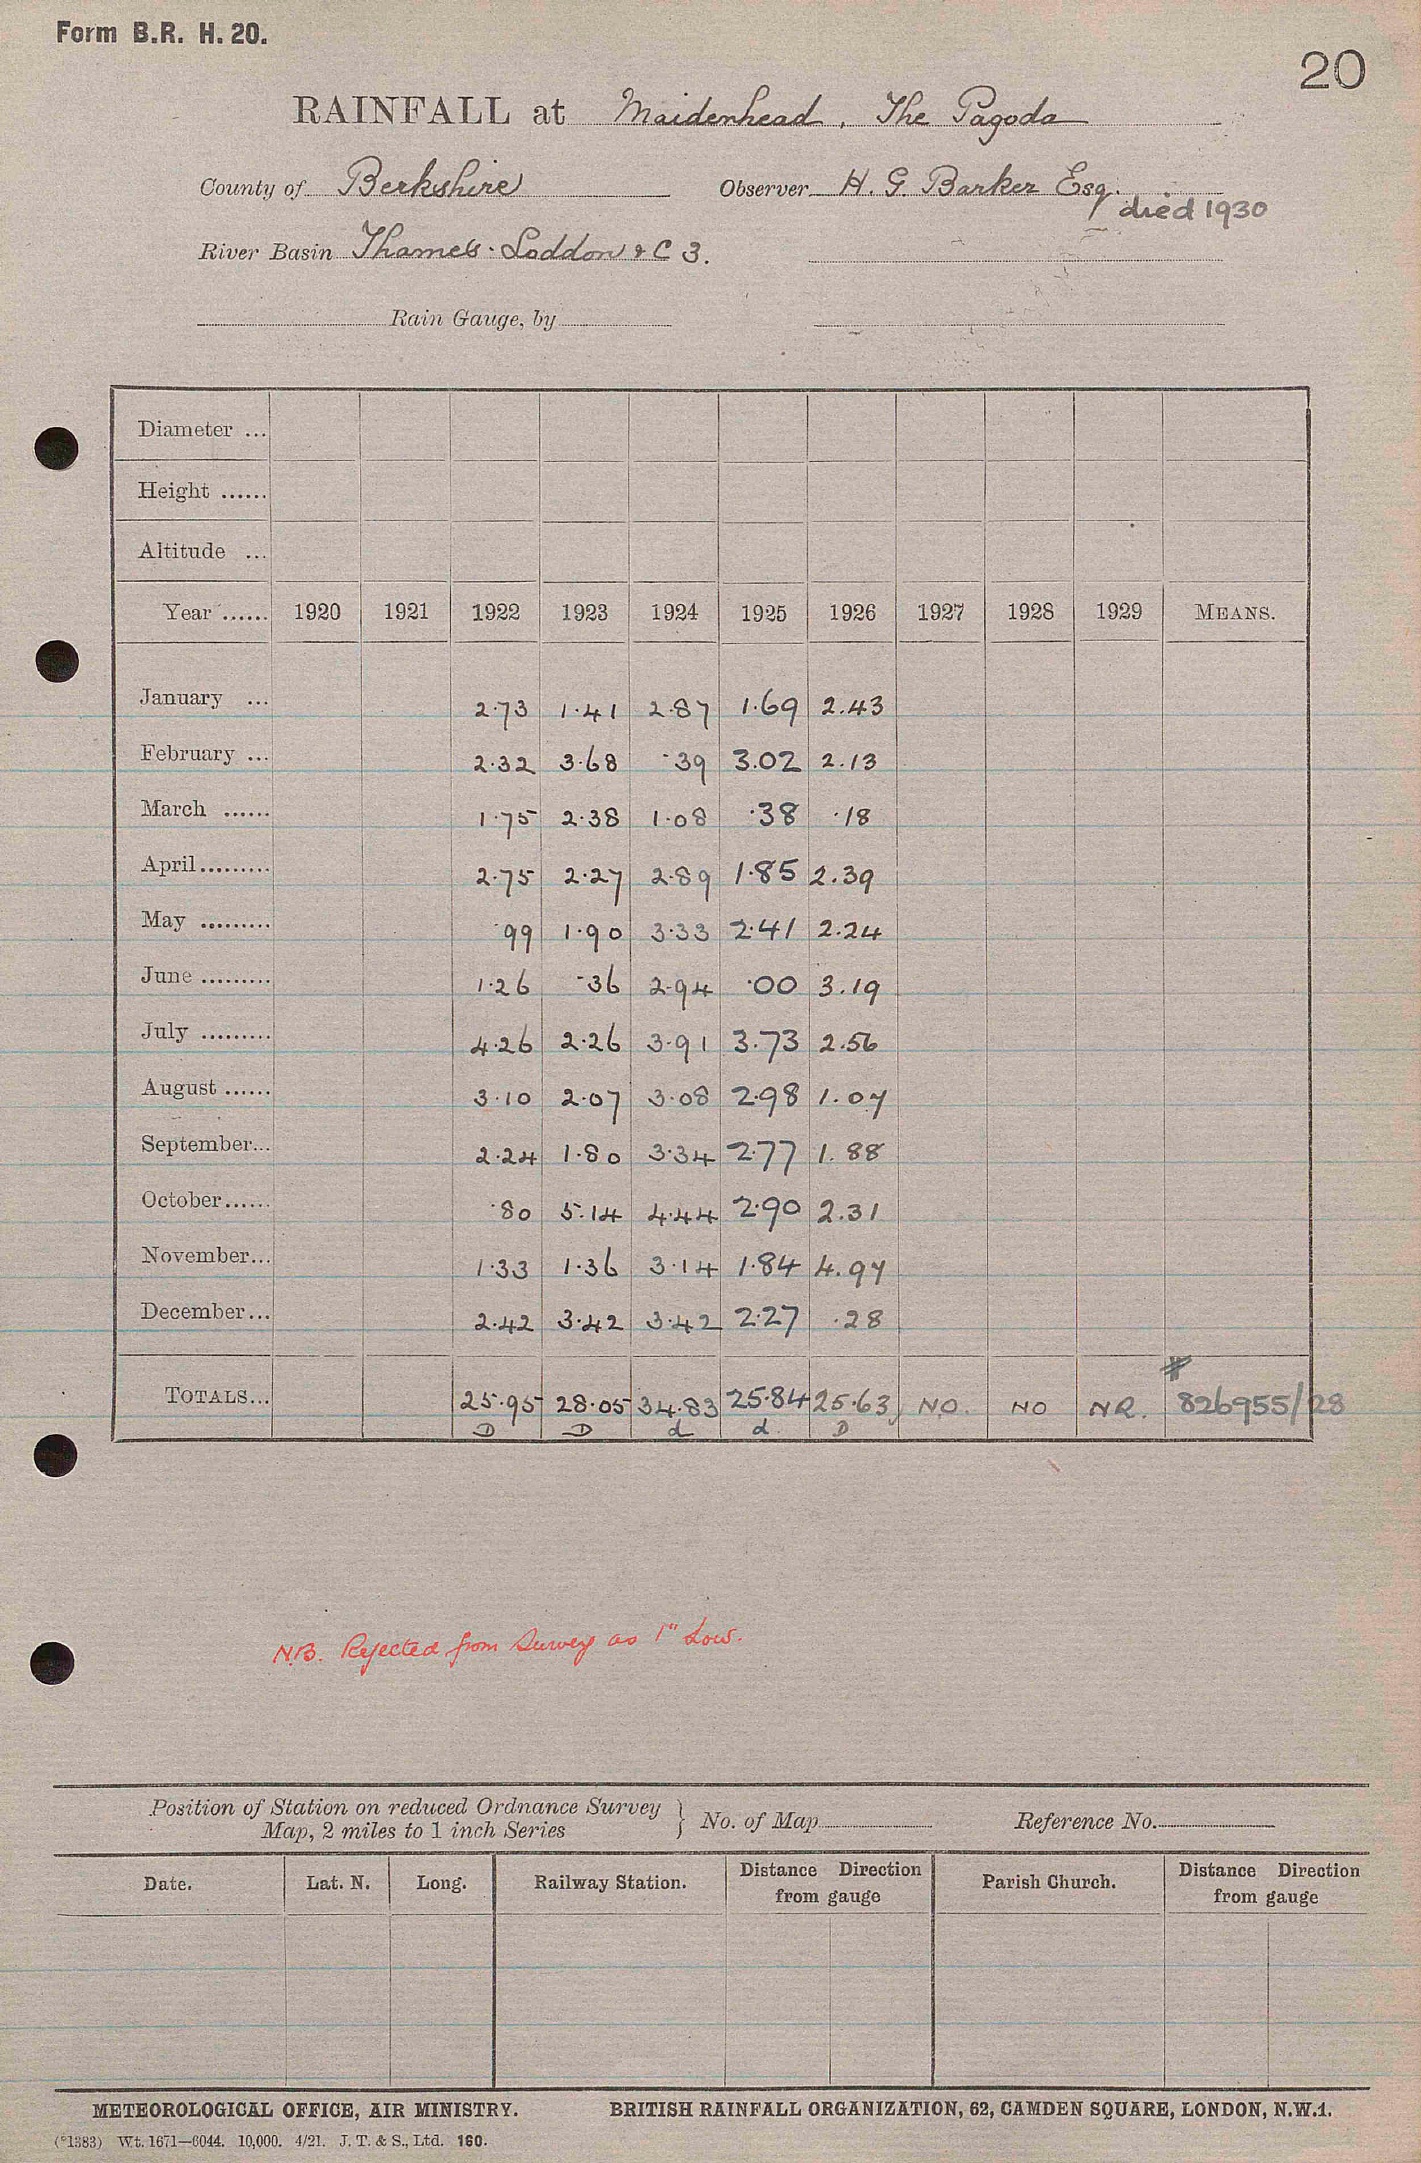 Form B.R. H. 20.
20
RAINFALL at Maidenhead, The Pagoda
County of Berkshire Observer H. G. Barker Esq.
died 1930
River Basin Thames · Loddon & C 3.
Rain Gauge, by
Diameter ...
Height ......
Altitude ...
Year ...... 1920 1921 1922 1923 1924 1925 1926 1927 1928 1929 MEANS.
January ... 2·73 1·41 2·87 1·69 2.43
February ... 2·32 3·68 ·39 3.02 2.13
March ...... 1·75 2·38 1·08 ·38 ·18
April ......... 2·75 2·27 2·89 1·85 2.39
May ......... ·99 1·90 3·33 2·41 2.24
June ......... 1·26 ·36 2·94 ·00 3.19
July ......... 4·26 2·26 3·91 3.73 2.56
August ...... 3·10 2·07 3·08 2·98 1.07
September... 2·24 1·80 3·34 2·77 1.88
October...... ·80 5·14 4·44 2·90 2.31
November... 1·33 1·36 3·14 1·84 4.97
December... 2·42 3·42 3·42 2·27 ·28
TOTALS... 25·95 28·05 34.83 25·84 25·63 NO. NO NR. 826955/28
D D d d D
N.B. Rejected from Survey as 1" Low.
Position of Station on reduced Ordnance Survey
Map, 2 miles to 1 inch Series } No. of Map Reference No.
Date. Lat. N. Long. Railway Station. Distance Direction from gauge Parish Church. Distance Direction from gauge
METEOROLOGICAL OFFICE, AIR MINISTRY. BRITISH RAINFALL ORGANIZATION, 62, CAMDEN SQUARE, LONDON, N.W.1.
(*1383) Wt. 1671—6044. 10,000. 4/21. J. T. & S., Ltd. 160.